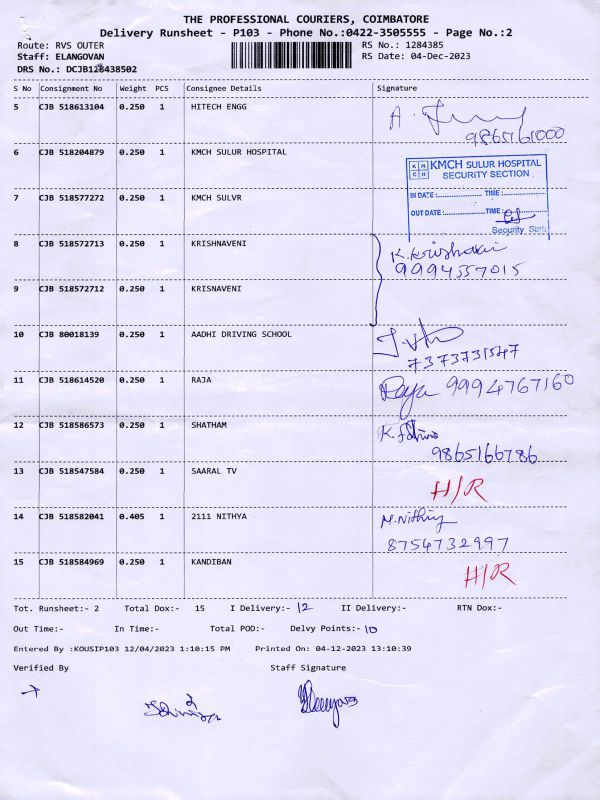 THE PROFESSIONAL COURIERS, COIMBATORE
Delivery Runsheet - P103 - Phone No.:0422-3505555 - Page No.:2
Route: RVS OUTER
RS No.: 1284385
Staff: ELANGOVAN
RS Date: 04-Dec-2023
DRS No.: DCJB128438502
S No Consignment No Weight PCS Consignee Details Signature
5 CJB 518613104 0.250 1 HITECH ENGG
9865161000
6 CJB 518204879 0.250 1 KMCH SULUR HOSPITAL
KMCH SULUR HOSPITAL
SECURITY SECTION
7 CJB 518577272 0.250 1 KMCH SULVR
IN DATE:.................. TIME:..................
OUT DATE:.................. TIME:
Security
8 CJB 518572713 0.250 1 KRISHNAVENI
9994557015
9 CJB 518572712 0.250 1 KRISNAVENI
10 CJB 80018139 0.250 1 AADHI DRIVING SCHOOL
7373731547
11 CJB 518614520 0.250 1 RAJA Raja 9994767160
12 CJB 518586573 0.250 1 SHATHAM
9865166786
13 CJB 518547584 0.250 1 SAARAL TV H/R
14 CJB 518582041 0.405 1 2111 NITHYA M.Nithiy
8754732997
15 CJB 518584969 0.250 1 KANDIBAN H/R
Tot. Runsheet:- 2 Total Dox:- 15 I Delivery:- 12 II Delivery:- RTN Dox:-
Out Time:- In Time:- Total POD:- Delvy Points:- 10
Entered By :KOUSIP103 12/04/2023 1:10:15 PM Printed On: 04-12-2023 13:10:39
Verified By Staff Signature